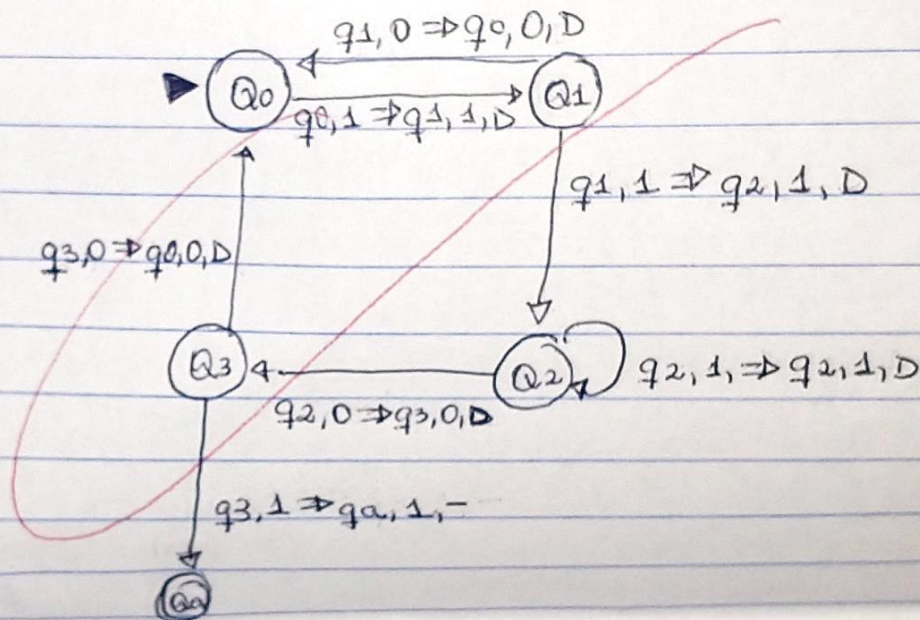 q1,0 ⇒ q0,0,D
Q0
Q1
q0,1 ⇒ q1,1,D
q1,1 ⇒ q2,1,D
q3,0 ⇒ q0,0,D
Q3
Q2
q2,1, ⇒ q2,1,D
q2,0 ⇒ q3,0,D
q3,1 ⇒ qa,1,-
Qa